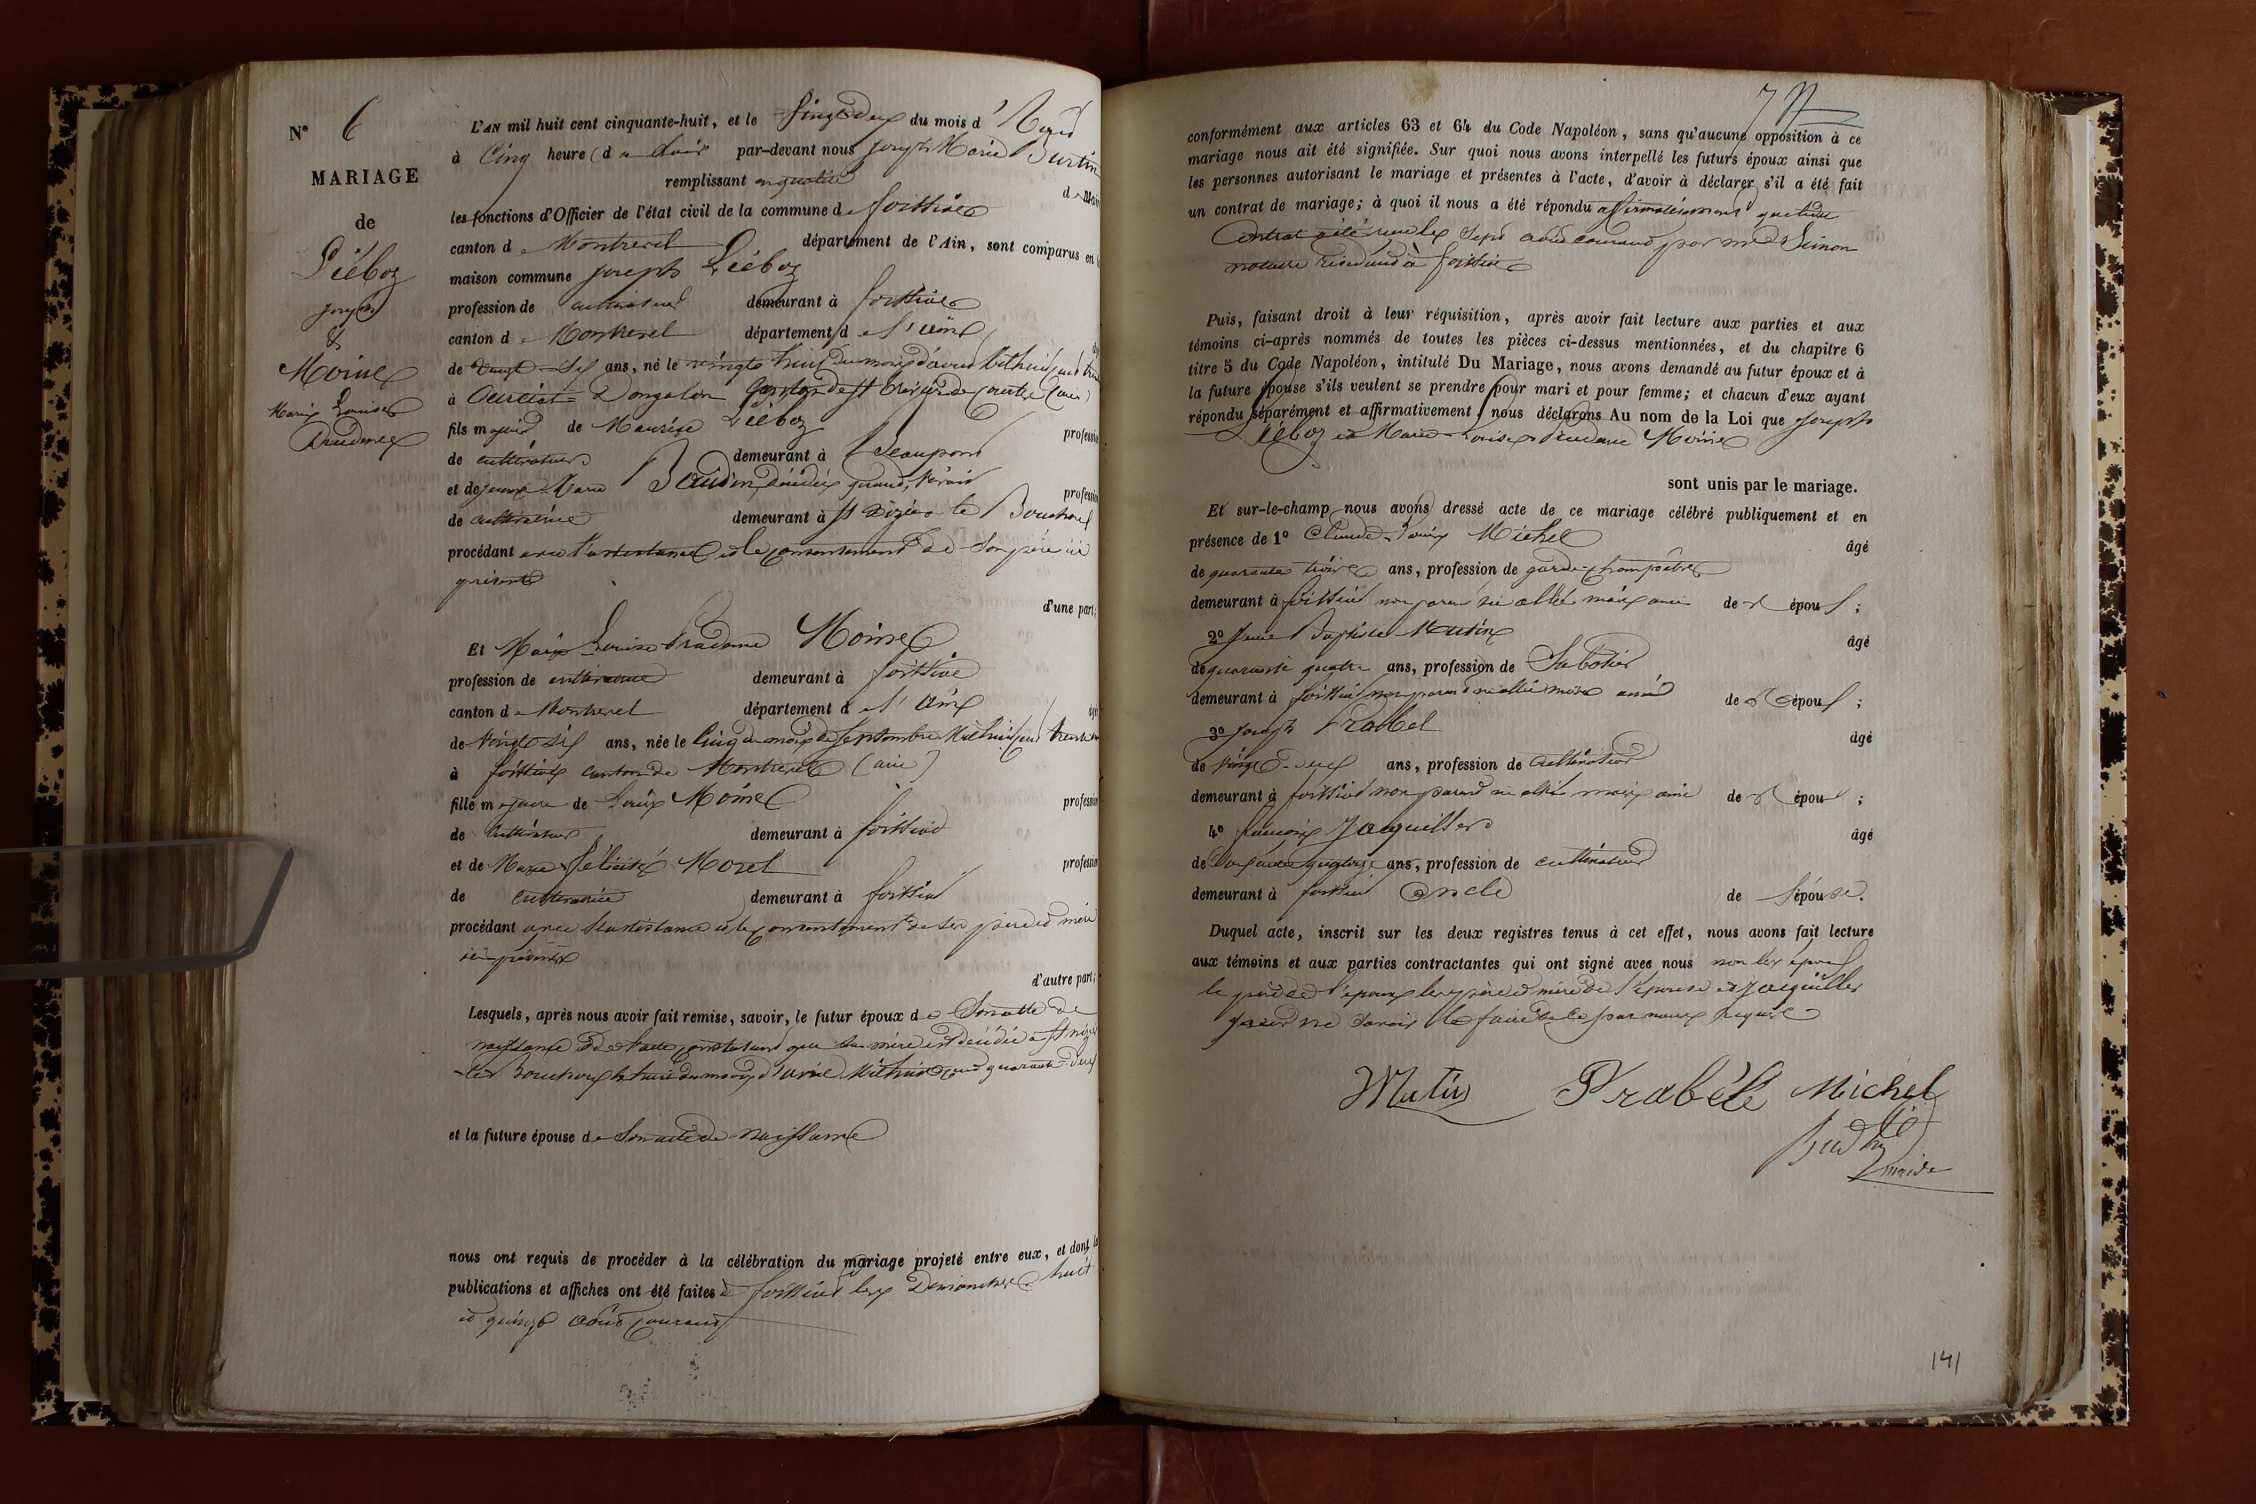 N° 6
MARIAGE
de
Piéboz
joseph
&
Moine
Marie Louise
Prudence
L'AN mil huit cent cinquante-huit, et le vingt deux du mois d'
à Cinq heure (d u Soir par-devant nous joseph Marie Burtin
remplissant en qualité d e Maire
les fonctions d'Officier de l'état civil de la commune d e foissiat
canton d e Montrevel département de l'Ain, sont comparus en la
maison commune joseph Piéboz
profession de cultivateur demeurant à foissiat
canton d e Montrevel département d e l'ain
de vingt six ans, né le vingt huit du mois d'avril mil huit cent
à Curciat Dongalon canton de st trivier de courtes (ain)
fils majeur de Maurice Piéboz profession
de cultivateur demeurant à Beaupont
et de jeanne Marie Baudin, décédée quand vivait profession
de cultivatrice demeurant à st Nizier le Bouchoux
procédant avec l'assistance et le consentement de son père ici
présent
d'une part;
Et Marie Louise Prudence Moine
profession de cultivatrice demeurant à foissiat
canton d e Montrevel département d e l'ain
de vingt six ans, née le cinq du mois de septembre mil huit cent trente
à foissiat canton de Montrevel (ain)
fille majeure de Louis Moine profession
de cultivateur demeurant à foissiat
et de Marie Félicité Morel profession
de cultivatrice demeurant à foissiat
procédant avec l'assistance et le consentement de ses père et mère
ici présents
d'autre part;
Lesquels, après nous avoir fait remise, savoir, le futur époux d e Son acte de
naissance et de l'acte constatant que sa mère est décédée à st nizier
le Bouchoux le du mois d mil huit cent quarante deux
et la future épouse d e Son acte de naissance
nous ont requis de procéder à la célébration du mariage projeté entre eux, et dont les
publications et affiches ont été faites à foissiat les Dimanches huit
et quinze août courant
conformément aux articles 63 et 64 du Code Napoléon, sans qu'aucune opposition à ce
mariage nous ait été signifiée. Sur quoi nous avons interpellé les futurs époux ainsi que
les personnes autorisant le mariage et présentes à l'acte, d'avoir à déclarer s'il a été fait
un contrat de mariage; à quoi il nous a été répondu affirmativement que leur
Contrat a été reçu le sept août courant par me
notaire résidant à foissiat
Puis, faisant droit à leur réquisition, après avoir fait lecture aux parties et aux
témoins ci-après nommés de toutes les pièces ci-dessus mentionnées, et du chapitre 6
titre 5 du Code Napoléon, intitulé Du Mariage, nous avons demandé au futur époux et à
la future épouse s'ils veulent se prendre pour mari et pour femme; et chacun d'eux ayant
répondu séparément et affirmativement, nous déclarons Au nom de la Loi que joseph
Piéboz et Marie Louise Prudence Moine
sont unis par le mariage.
Et sur-le-champ nous avons dressé acte de ce mariage célébré publiquement et en
présence de 1° Claude Louis Michel âgé
de quarante trois ans, profession de garde champêtre
demeurant à foissiat non parent ni allié mais ami de l' époux;
2° jean Baptiste Mutin âgé
de quarante quatre ans, profession de Sabotier
demeurant à foissiat non parent ni allié mais ami de l' époux;
3° joseph Prabel âgé
de vingt deux ans, profession de cultivateur
demeurant à foissiat non parent ni allié mais ami de l' époux;
4° françois jacquiller âgé
de ans, profession de cultivateur
demeurant à foissiat oncle de l'épouse.
Duquel acte, inscrit sur les deux registres tenus à cet effet, nous avons fait lecture
aux témoins et aux parties contractantes qui ont signé avec nous non les époux
le père de l'époux les père et mère de l'épouse et jacquiller
pour ne savoir le faire de ce par nous requis
Mutin Prabèle Michel
maire
141